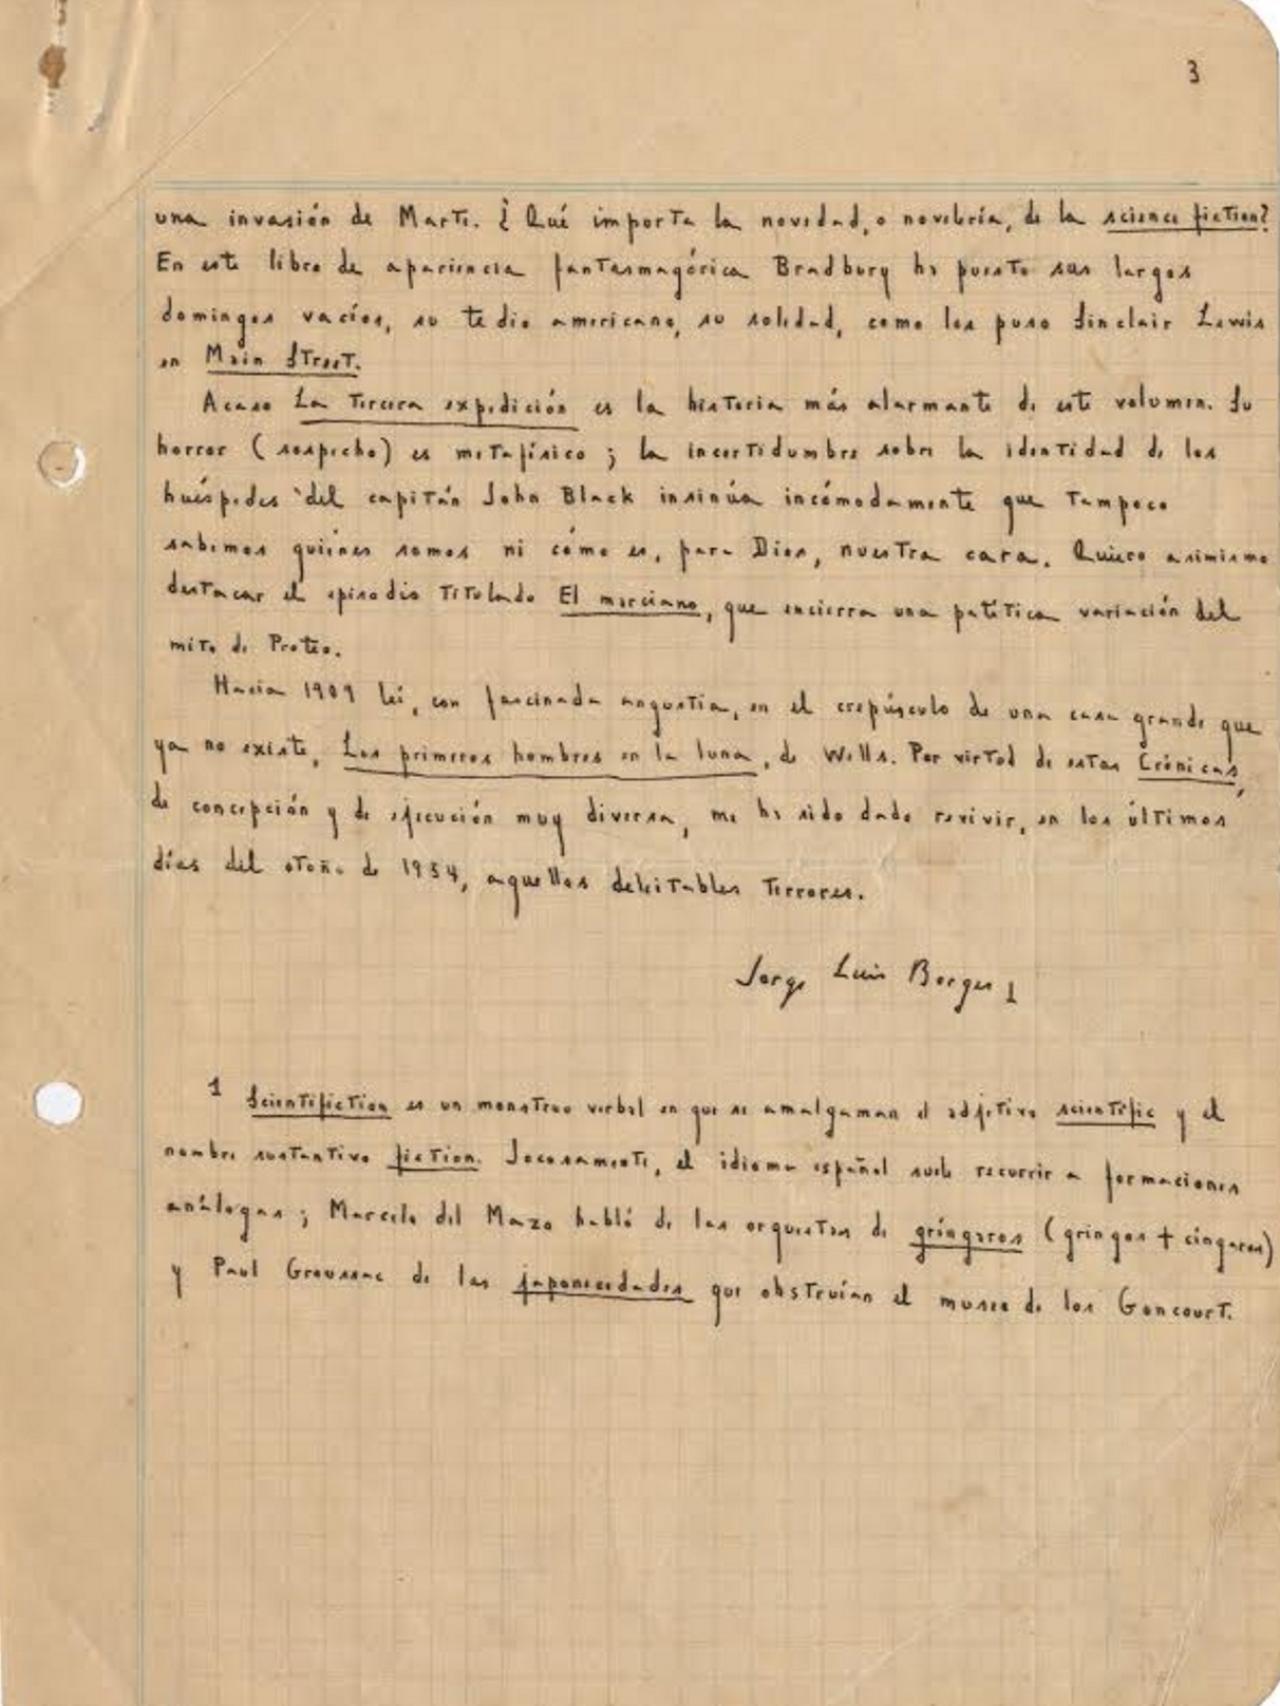 3
una invasión de Marte. ¿Qué importa la novedad, o novelería, de la science fiction?
En este libro de apariencia fantasmagórica Bradbury ha puesto sus largos
domingos vacíos, su tedio americano, su soledad, como los puso Sinclair Lewis
en Main Street.
Acaso La tercera expedición es la historia más alarmante de este volumen. Su
horror (sospecho) es metafísico; la incertidumbre sobre la identidad de los
huéspedes del capitán John Black insinúa incómodamente que tampoco
sabemos quiénes somos ni cómo es, para Dios, nuestra cara. Quiero asimismo
destacar el episodio titulado El marciano, que encierra una patética variación del
mito de Proteo.
Hacia 1909 leí, con fascinada angustia, en el crepúsculo de una casa grande que
ya no existe, Los primeros hombres en la luna, de Wells. Por virtud de estas Crónicas,
de concepción y de ejecución muy diversa, me ha sido dado revivir, en los últimos
días del otoño de 1954, aquellos deleitables terrores.
Jorge Luis Borges
1 Scientifiction es un monstruo verbal en que se amalgaman el adjetivo scientific y el
nombre sustantivo fiction. Jocosamente, el idioma español suele recurrir a formaciones
análogas; Marcelo del Mazo habló de las orquestas de gríngaros (gringos + cíngaros)
y Paul Groussac de las japonecedades que obstruían el museo de los Goncourt.